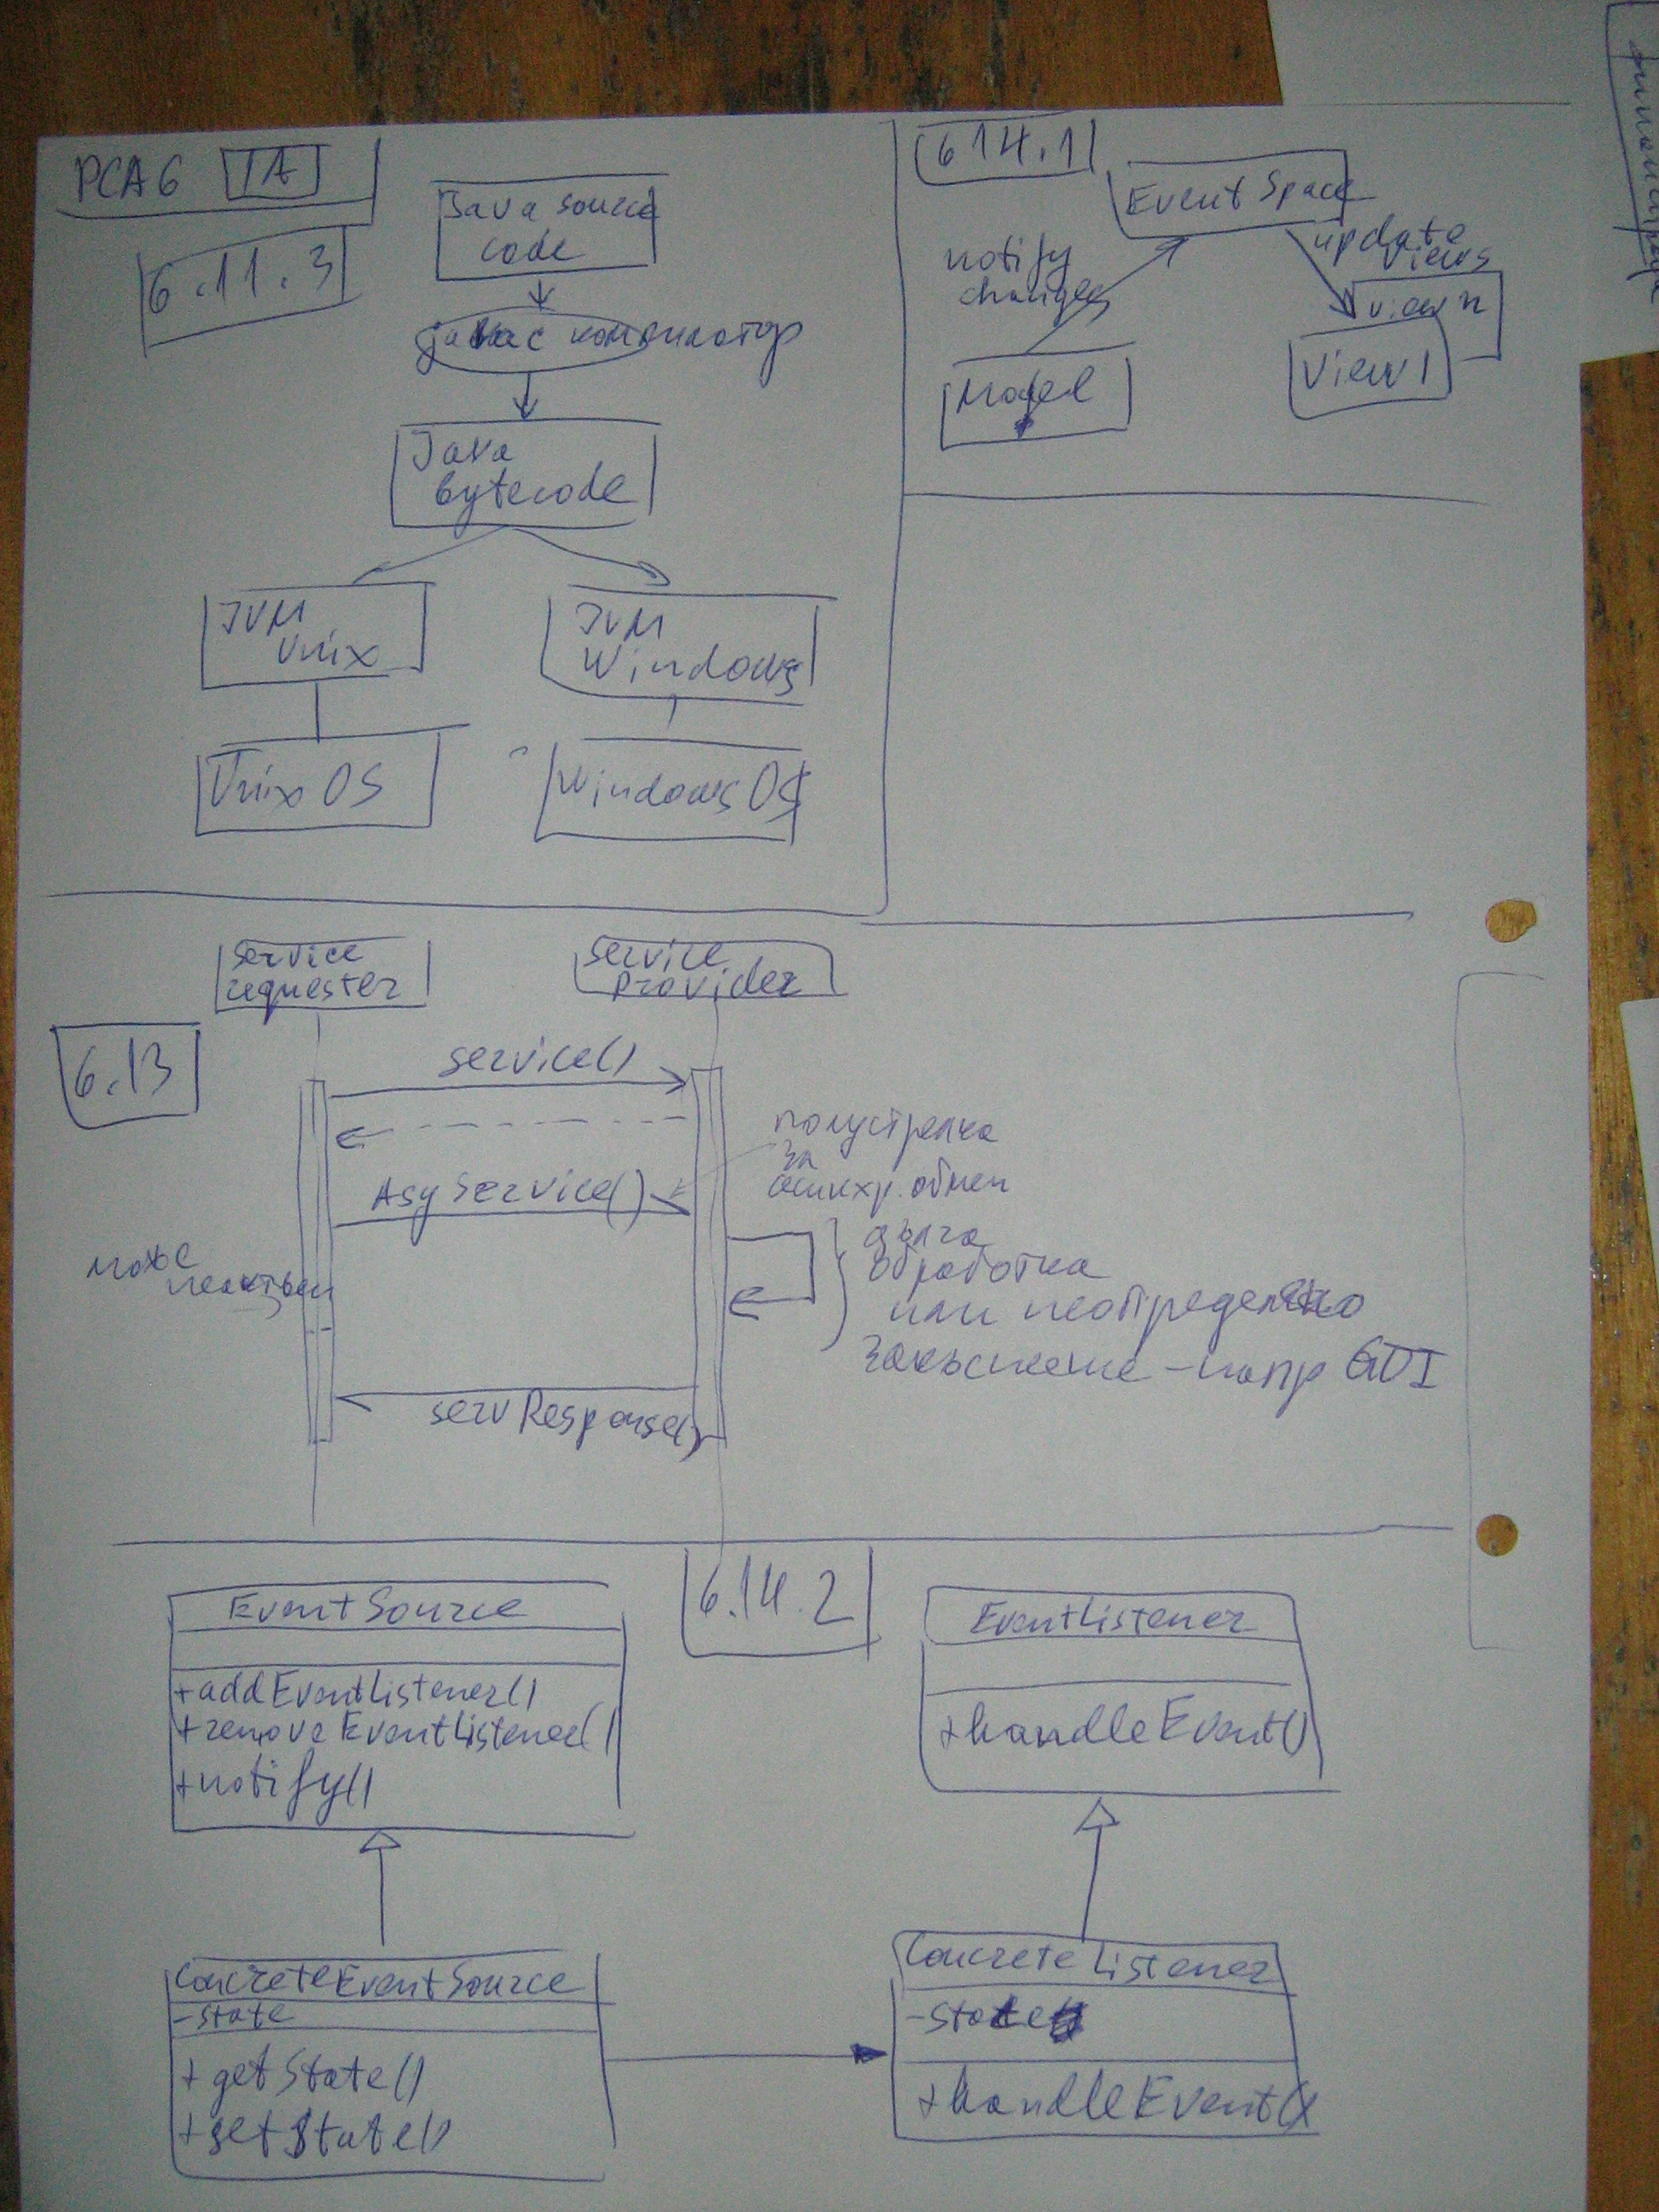 РСА6
6.11.3
Java source
code
javac компилатор
Java
bytecode
JVM
Unix
JVM
Windows
Unix OS
Windows OS
6 14.1
Event Space
notify
changes
update
views
Model
view n
View 1
service
requester
service
provider
6.13
service()
AsyService()
полустрелка
за
асинхр. обмен
дълга
обработка
или неопределено
закъснение - напр GUI
може
неактивен
servResponse()
6.14.2
EventSource
+addEventListener()
+removeEventListener()
+notify()
EventListener
+handleEvent()
ConcreteEventSource
-state
+getState()
+setState()
ConcreteListener
-state
+handleEvent()